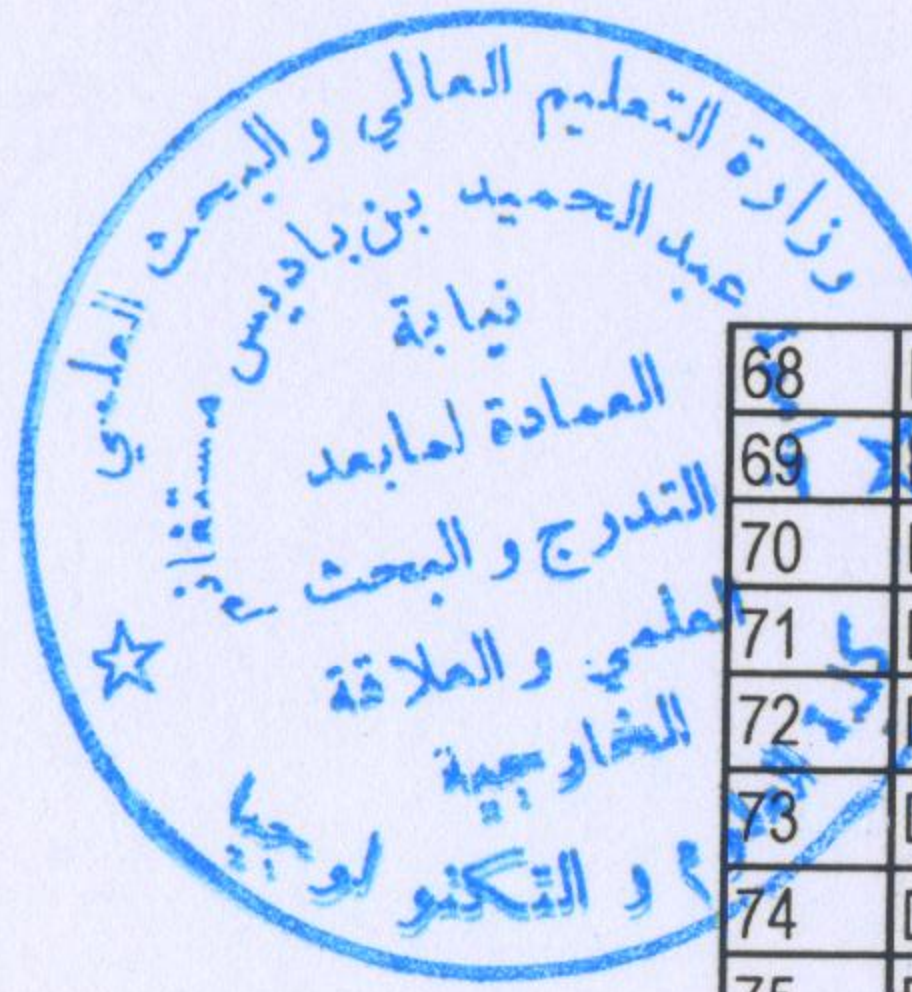 وزارة التعليم العالي و البحث العلمي
عبد الحميد بن باديس مستغانم
نيابة
العمادة لمابعد
التدرج و البحث
العلمي و العلاقة
الخارجية
و التكنولوجيا
68
69
70
71
72
73
74
75